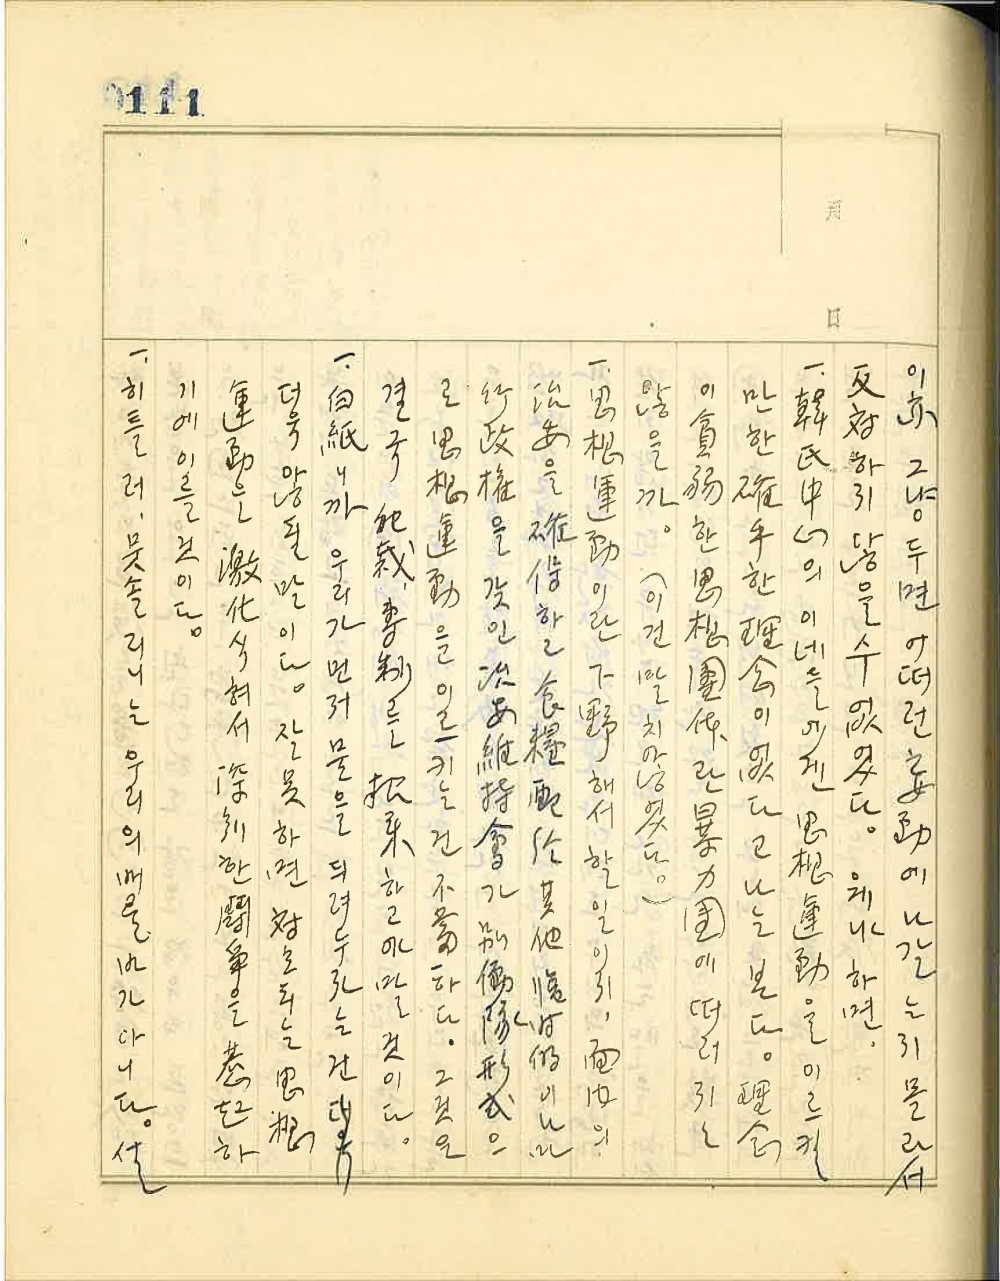 0111
月 日
이亦 그냥 두면 어떠런 妄動에 나갈는지 몰라서
反対하지 않을 수 없엇다. 웨냐 하면.
一. 韓氏中心의 이네들에겐 思想運動을 이르킬
만한 確乎한 理念이 없다고 나는 본다. 理念
이 貧弱한 思想團体란 暴力団에 떠러지는
않을까. (이건 말치않엇다.)
一. 思想運動이란 下野해서 할 일이지, 面內의
治安을 確保하고 食糧配給 其他 臨時的이나마
行政権을 갖인 治安維持會가 別働隊形式으
로 思想運動을 이르키는 건 不當하다. 그것은
결국 独裁, 専制를 招来하고야 말 것이다.
一. 白紙니까 우리가 먼저 물을 듸려누자는 건 더욱
더욱 않될 말이다. 잘못하면 対立되는 思想
運動을 激化식혀서 深刻한 鬪爭을 惹起하
기에 이를 것이다.
一. 히틀러, 뭇솔리니는 우리의 배를 바가다니다. 설